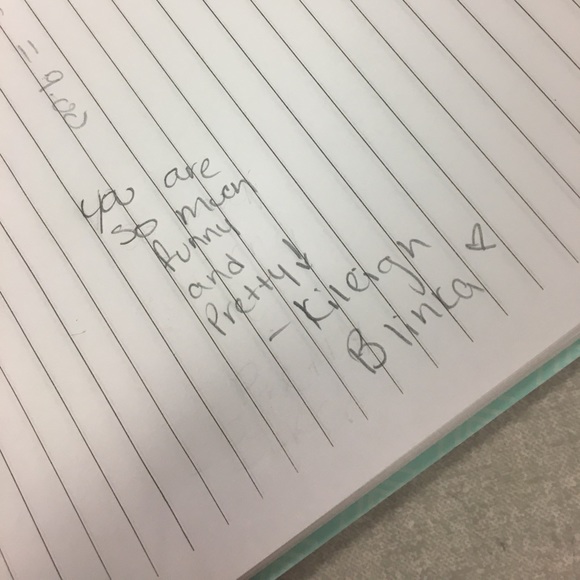 = 9.00
you are
so much
funny
and
Pretty
- Kileigh
Blinka